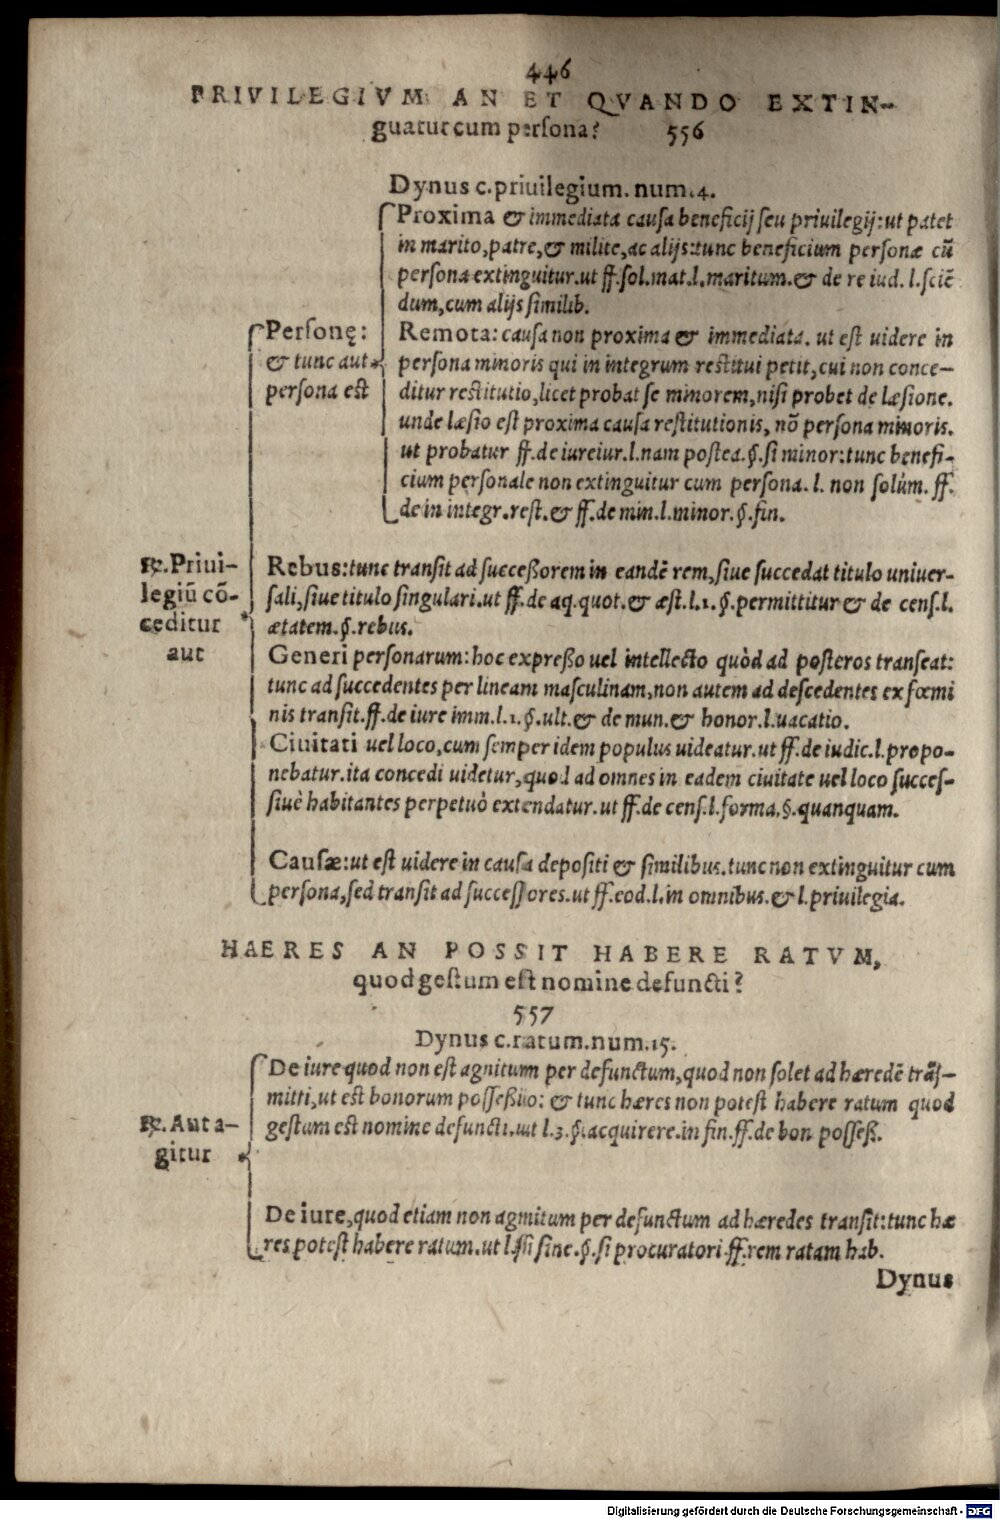 446
PRIVILEGIVM AN ET QVANDO EXTIN-
guatur cum persona? 556
Dynus c.priuilegium.num.4.
Proxima & immediata causa beneficij seu priuilegij:ut patet
in marito,patre,& milite,ac alijs:tunc beneficium personæ cū
persona extinguitur.ut ff.sol.mat.l.maritum.& de re iud.l.sciē
dum,cum alijs similib.
Personę:
& tunc aut
persona est
Remota:causa non proxima & immediata.ut est uidere in
persona minoris qui in integrum restitui petit,cui non conce-
ditur restitutio,licet probat se minorem,nisi probet de læsione.
unde læsio est proxima causa restitutionis,nō persona minoris.
ut probatur ff.de iureiur.l.nam postea.§.si minor:tunc benefi-
cium personale non extinguitur cum persona.l.non solùm.ff.
de in integr.rest.& ff.de min.l.minor.§.fin.
℞.Priui-
legiū cō-
ceditur
aut
Rebus:tunc transit ad successorem in eandē rem,siue succedat titulo uniuer-
sali,siue titulo singulari.ut ff.de aq.quot.& æst.l.1.§.permittitur & de cens.l.
ætatem.§.rebus.
Generi personarum:hoc expresso uel intellecto quòd ad posteros transeat:
tunc ad succedentes per lineam masculinam,non autem ad descedentes ex fœmi
nis transit.ff.de iure imm.l.1.§.ult.& de mun.& honor.l.uacatio.
Ciuitati uel loco,cum semper idem populus uideatur.ut ff.de iudic.l.propo-
nebatur.ita concedi uidetur,quod ad omnes in eadem ciuitate uel loco succes-
siuè habitantes perpetuò extendatur.ut ff.de cens.l.forma.§.quanquam.
Causæ:ut est uidere in causa depositi & similibus.tunc non extinguitur cum
persona,sed transit ad successores.ut ff.eod.l.in omnibus.& l.priuilegia.
HAERES AN POSSIT HABERE RATVM,
quod gestum est nomine defuncti?
557
Dynus c.ratum.num.15.
De iure quod non est agnitum per defunctum,quod non solet ad hæredē trāj-
mitti,ut est bonorum possessio: & tunc hæres non potest habere ratum quod
gestum est nomine defuncti.ut l.3.§.acquirere.in fin.ff.de bon possess.
℞.Aut a-
gitur
De iure,quod etiam non agnitum per defunctum ad hæredes transit:tunc hæ
res potest habere ratum.ut l.si sine.§.si procuratori.ff.rem ratam hab.
Dynus
Digitalisierung gefördert durch die Deutsche Forschungsgemeinschaft - DFG